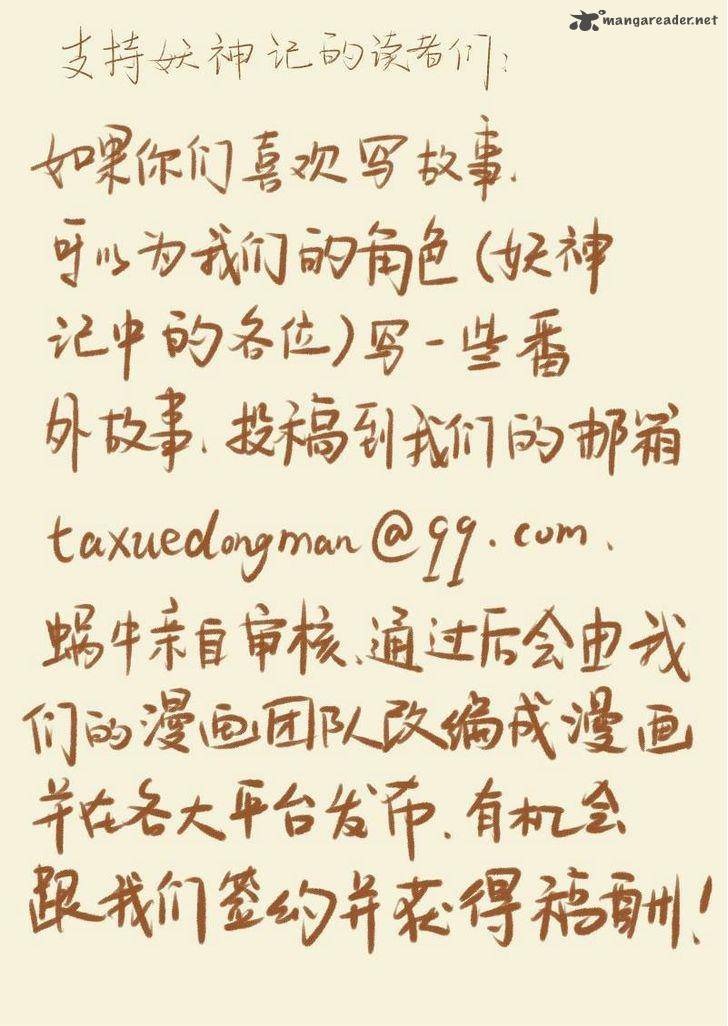 mangareader.net
支持妖神记的读者们：
如果你们喜欢写故事.
可以为我们的角色(妖神
记中的各位)写一些番
外故事.投稿到我们的邮箱
taxuedongman@qq.com.
蜗牛亲自审核.通过后会由我
们的漫画团队改编成漫画
并在各大平台发布.有机会
跟我们签约并获得稿酬！